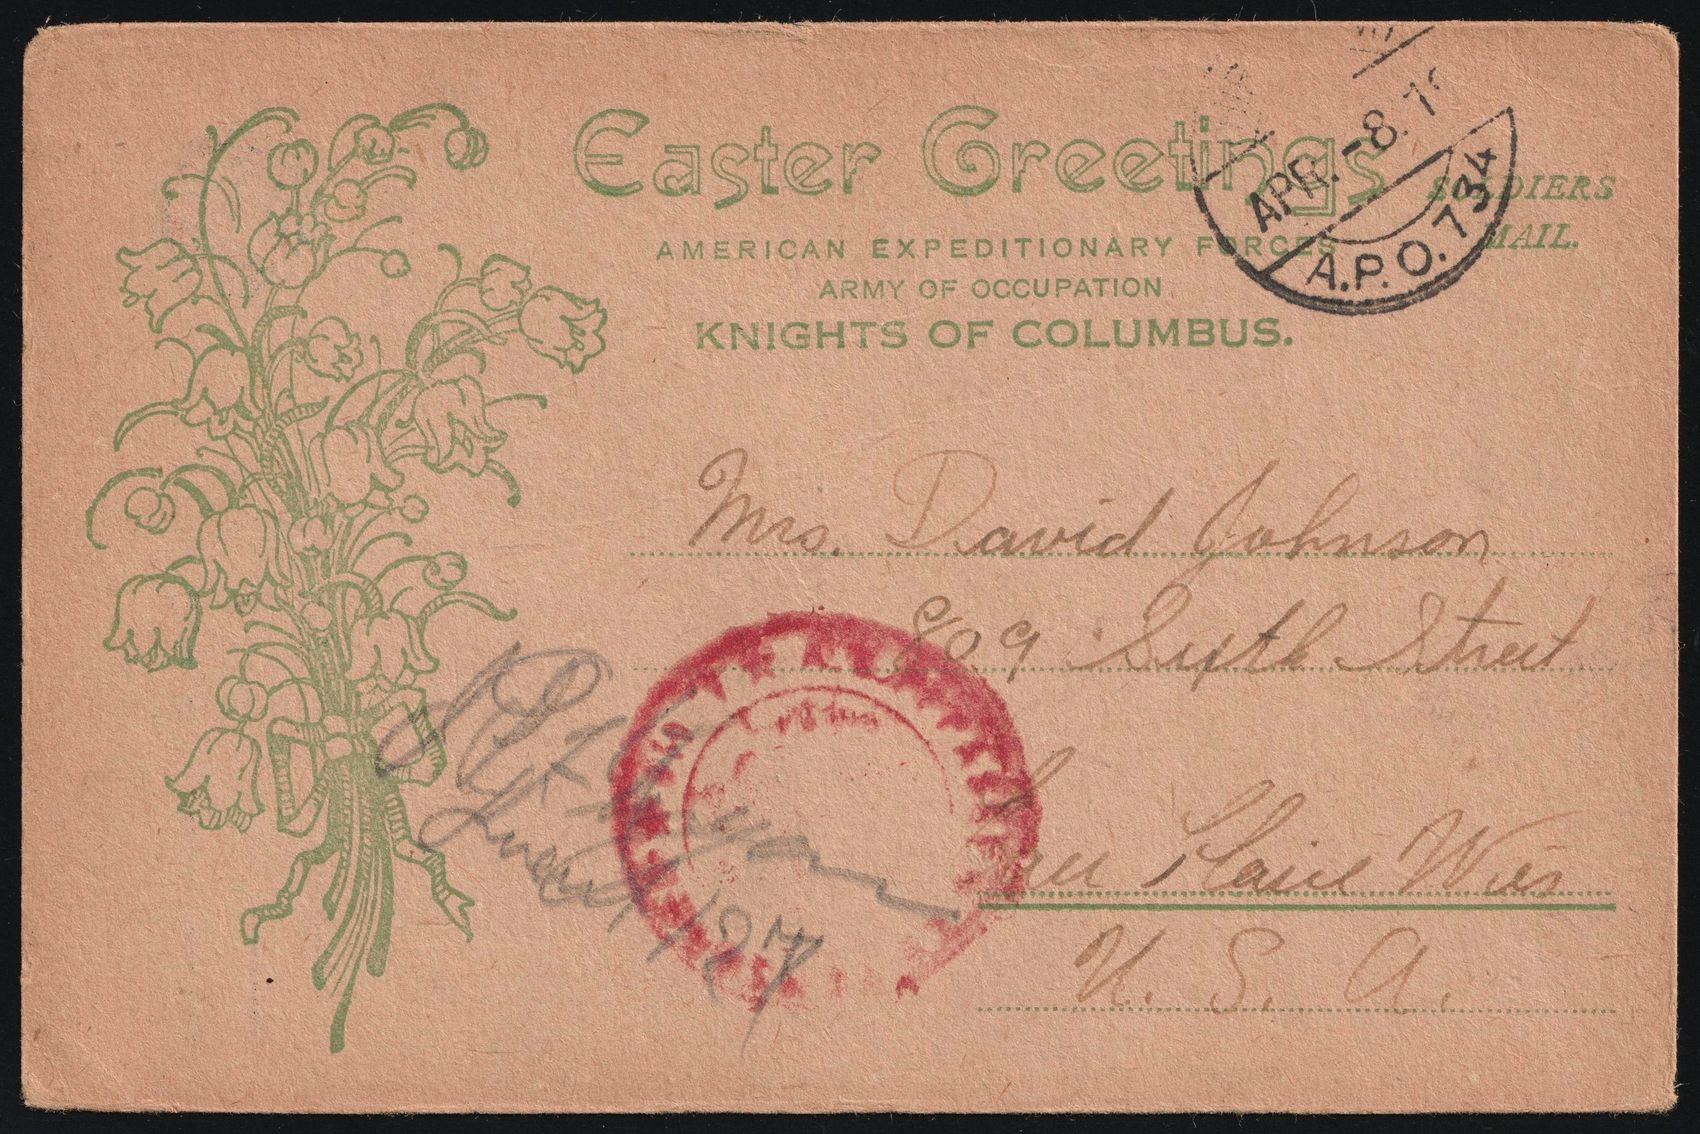 Easter Greetings
AMERICAN EXPEDITIONARY FORCES
ARMY OF OCCUPATION
KNIGHTS OF COLUMBUS.
SOLDIERS
MAIL.
APR. -8. 
A.P.O. 734
Mrs. David Johnson
809 Sixth Street
Eau Claire Wis
U. S. A.
127